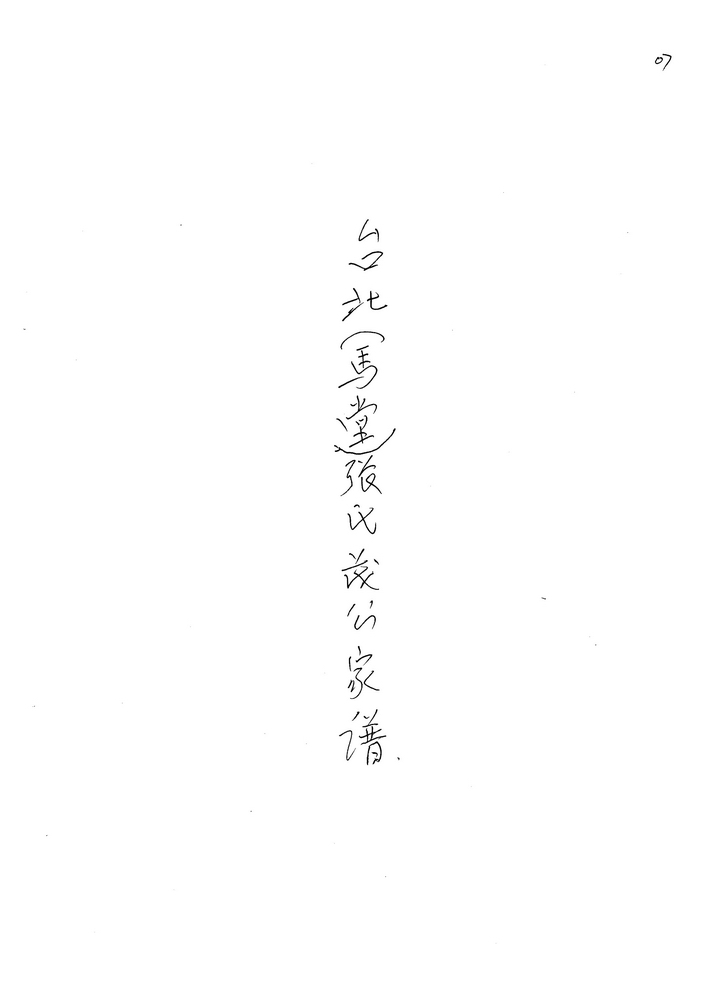 07
台北(馬堂)張氏茂公家谱.